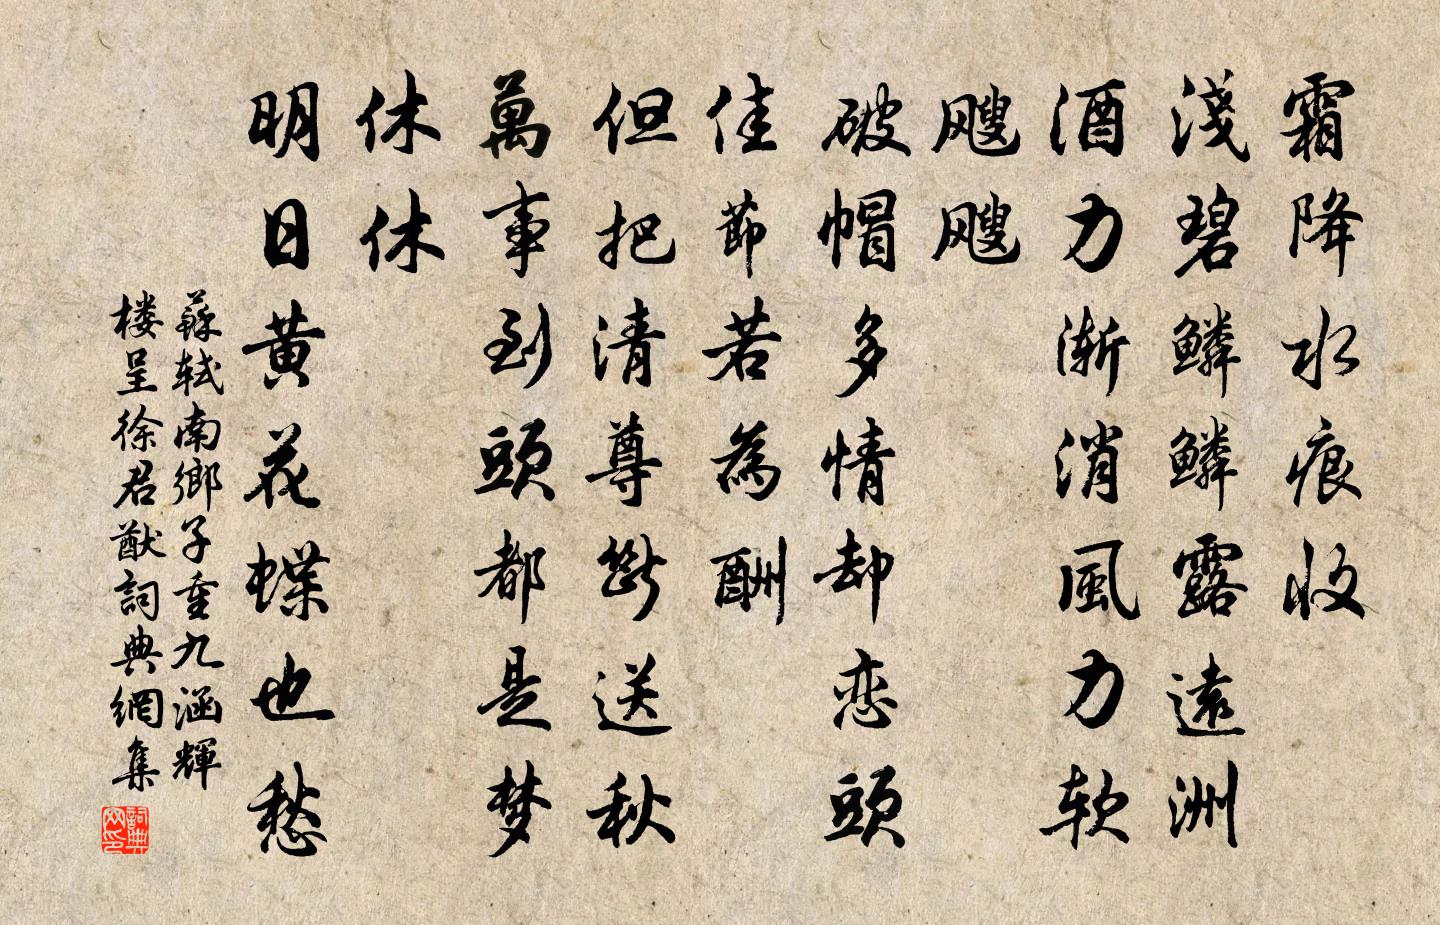 霜降水痕收
淺碧鱗鱗露遠洲
酒力漸消風力软
颼颼
破帽多情却恋頭
佳節若為酬
但把清尊斷送秋
萬事到頭都是梦
休休
明日黄花蝶也愁
蘇轼南鄉子重九涵輝
楼呈徐君猷詞典網集
詞典网印